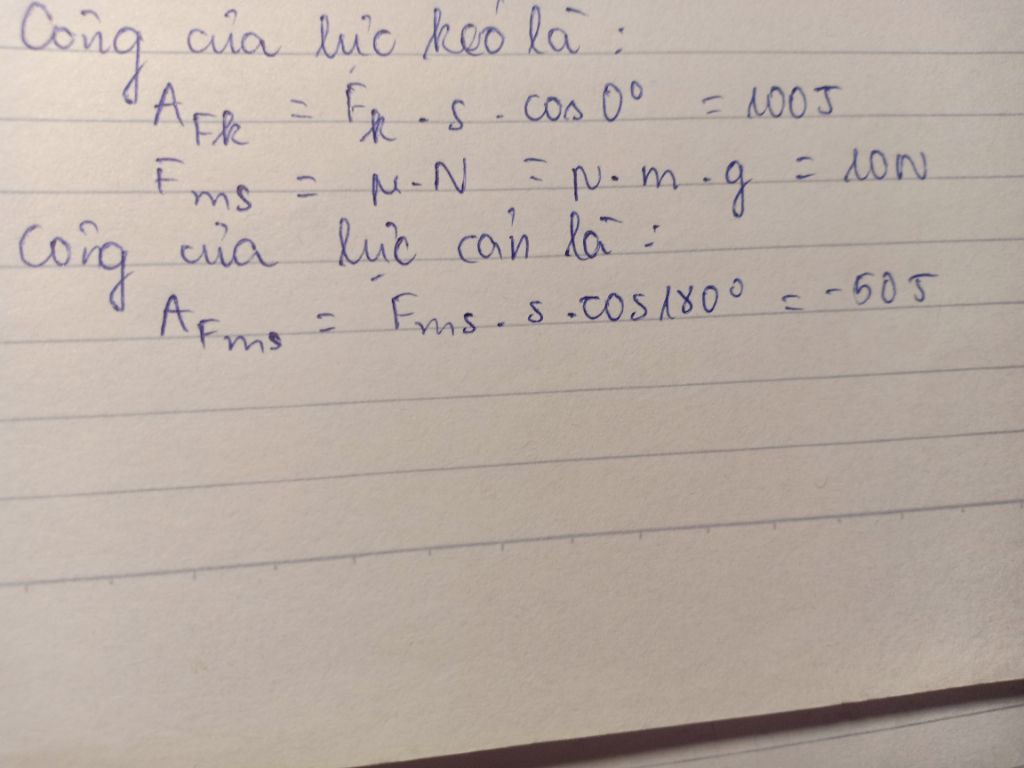 Công của lực kéo là :
A_Fk = F_k . s . cos 0° = 100J
F_ms = μ.N = μ.m.g = 10N
Công của lực cản là :
A_Fms = F_ms . s . cos 180° = -50J